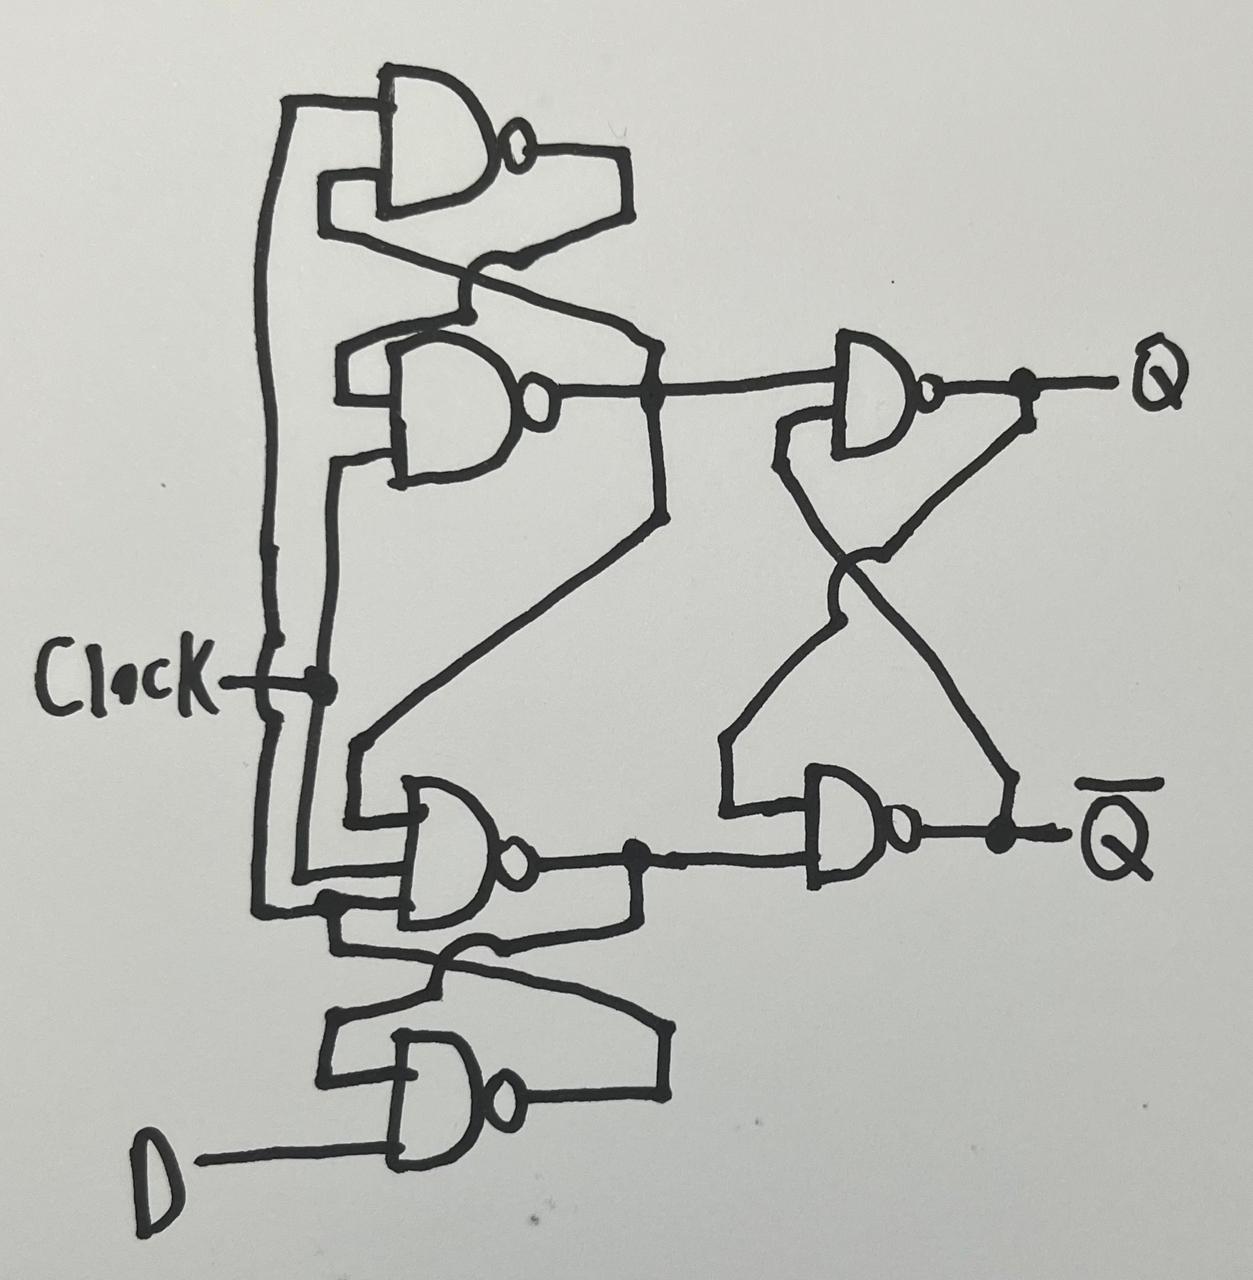 Q
Clock
Q̅
D